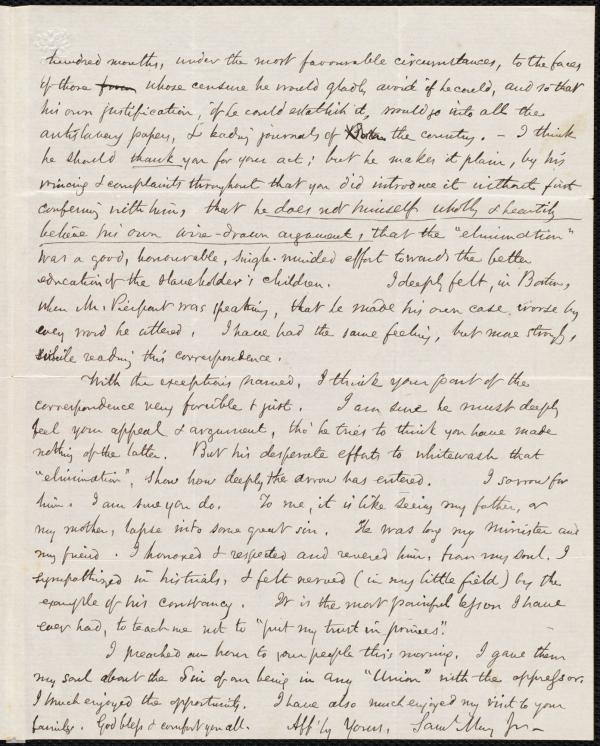 hundred months, under the most favourable circumstances, to the faces
of those from whose censure he would gladly avoid if he could, and so that
his own justification, if he could establish it, would go into all the
antislavery papers, & leading journals of the country. – I think
he should thank you for your act; but he makes it plain, by his
wincing & complaints throughout that you did introduce it without first
conferring with him, that he does not himself wholly & heartily
believe his own wire-drawn argument, that the "elimination"
was a good, honourable, single-minded effort towards the better
education of the slaveholder's children. I deeply felt, in Boston,
when Mr. Pierpont was speaking, that he made his own case worse by
every word he uttered. I have had the same feeling, but more strongly,
while reading this correspondence.
With the exceptions named, I think your part of the
correspondence very forcible & just. I am sure he must deeply
feel your appeal & argument, tho' he tries to think you have made
nothing of the latter. But his desperate efforts to whitewash that
"elimination", show how deeply the arrow has entered. I sorrow for
him. I am sure you do. To me, it is like seeing my father, or
my mother, lapse into some great sin. He was long my Minister and
my friend. I honored & respected and revered him, from my soul. I
sympathized in his trials, & felt nerved (in my little field) by the
example of his constancy. It is the most painful lesson I have
ever had, to teach me not to "put my trust in princes".
I preached an hour to your people this morning. I gave them
my soul about the Sin of our being in any "Union" with the oppressor.
I much enjoyed the opportunity. I have also much enjoyed my visit to your
family. God bless & comfort you all. Aff'ly Yours, Saml. May Jr –